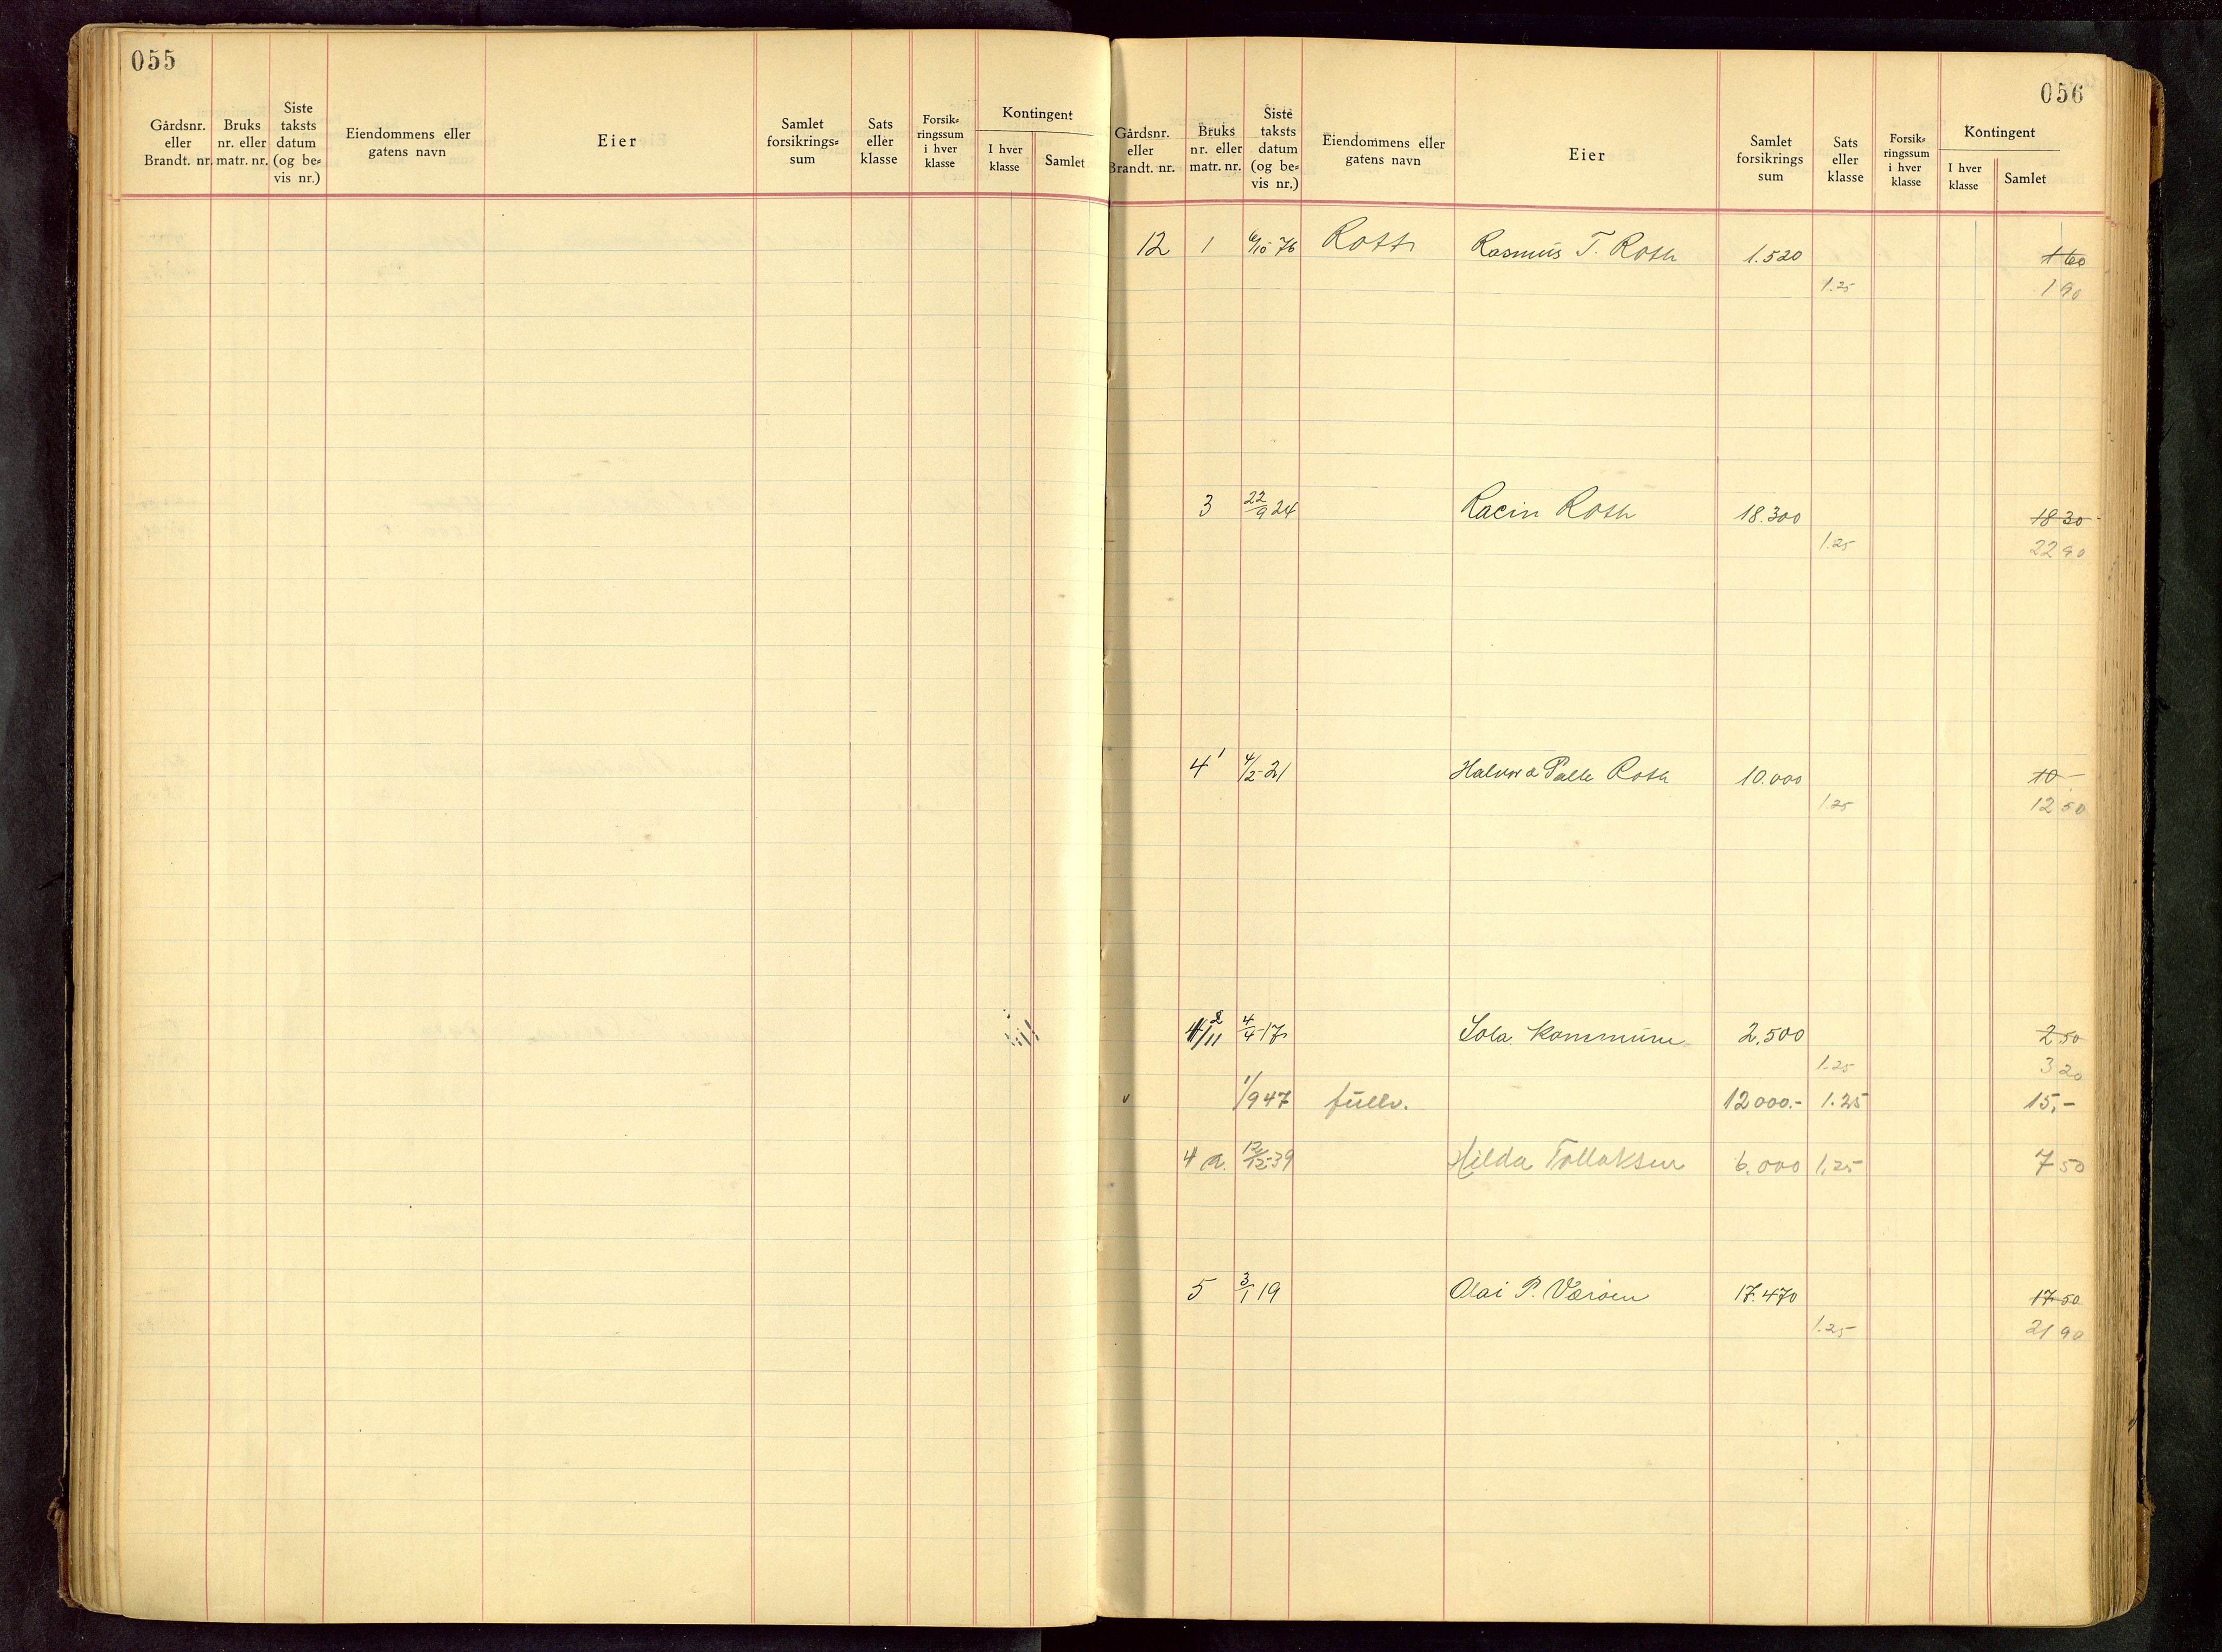 055
Gårdsnr. eller Brandt. nr. Bruks nr. eller matr. nr. Siste taksts datum (og be= vis nr.) Eiendommens eller gatens navn Eier Samlet forsikrings= sum Sats eller klasse Forsik= ringssum i hver klasse Kontingent I hver klasse Samlet
056
Gårdsnr. eller Brandt. nr. Bruks nr. eller matr. nr. Siste taksts datum (og be= vis nr.) Eiendommens eller gatens navn Eier Samlet forsikrings sum Sats eller klasse Forsik= ringssum i hver klasse Kontingent I hver klasse Samlet
12 1 6/10 76 Roth Rasmus T. Roth 1.520 1 60
1.25 1 90
3 22/9 24 Roth 18.300 18 30
1.25 22 90
4 1 4/2 21 Halvor & Palle Roth 10.000 10 -
1.25 12 50
4 2/11 4/4 17 Sola kommune 2.500 2 50
1.25 3 20
1/9 47 fullv. 12 000.- 1.25 15,-
4 a. 12/12-39 Hilda Tollaksen 6.000 1,25 7 50
5 3/1 19 Olai P. 17.470 17 50
1.25 21 90